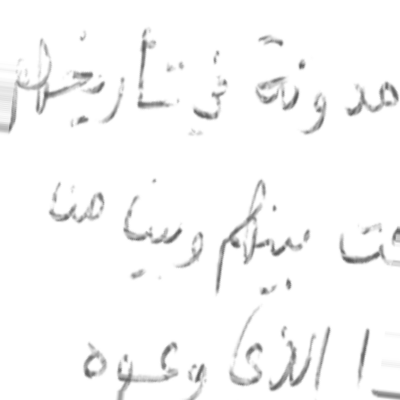 مدونة في تاريخها
بينهم وبينا هنا
الذي وعوه